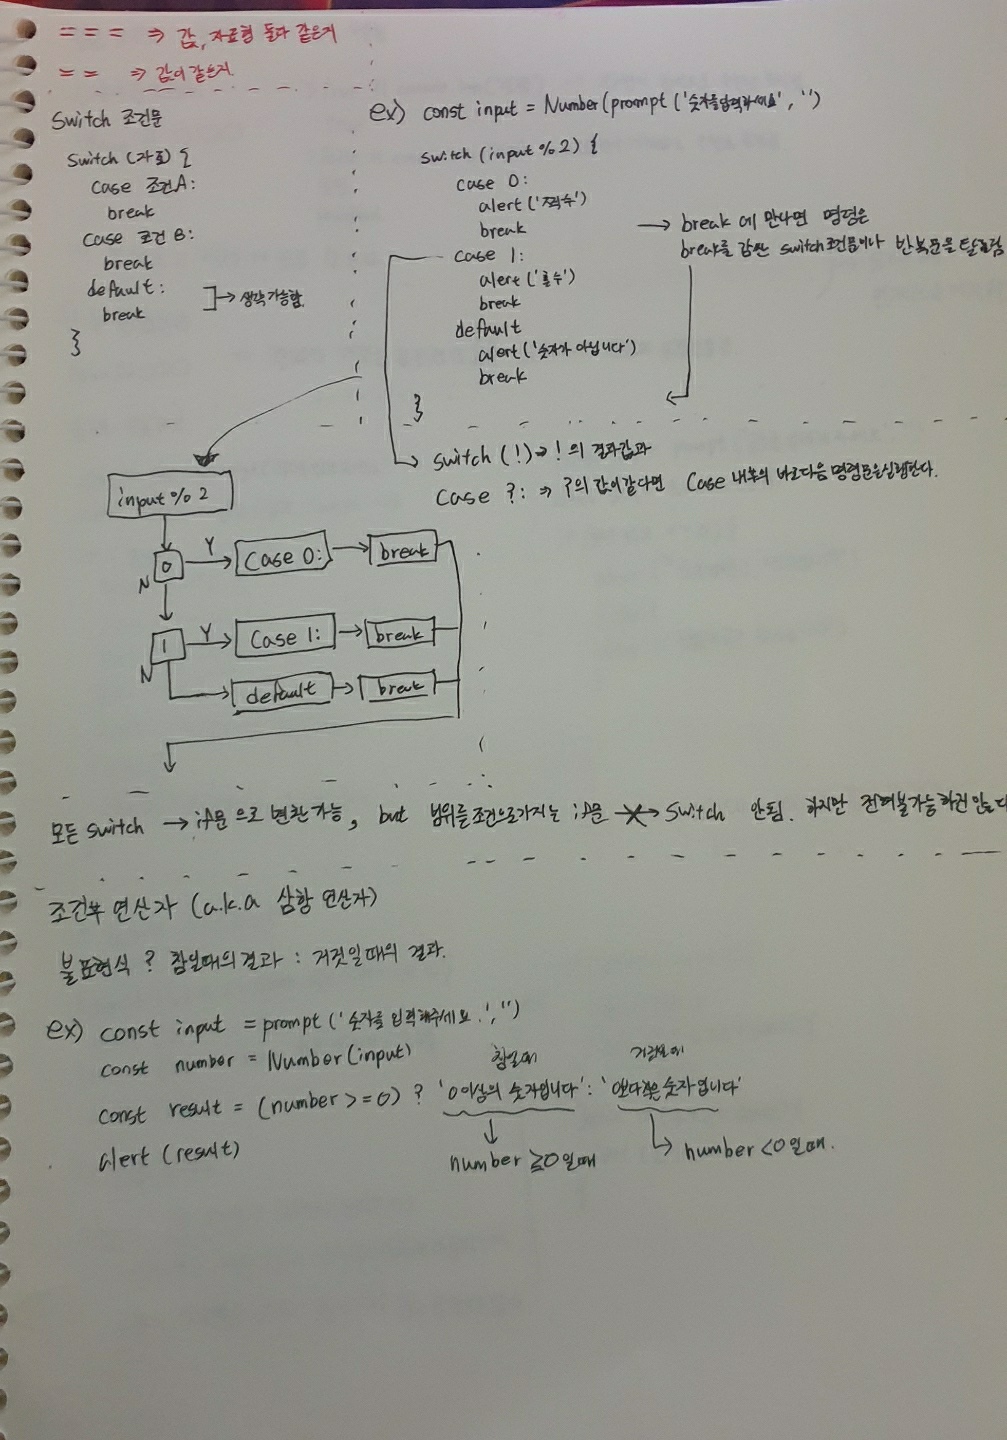 === ⇒ 값, 자료형 둘다 같은지
== ⇒ 값이 같은지
Switch 조건문
switch (자료) {
case 조건A:
break
case 조건 B:
break
default:
break
→ 생략가능함.
}
ex) const input = Number(prompt('숫자를입력하세요', '')
switch (input % 2) {
case 0:
alert('짝수')
break
case 1:
alert('홀수')
break
default
alert('숫자가 아닙니다')
break
}
→ break 에 만나면 명령은
break를 감싼 switch조건문이나 반복문을 탈출함
switch (!) ⇒ ! 의 결과값과
case ?: ⇒ ?의 값이 같다면 case 내부의 바로다음 명령문을실행한다.
input % 2
0 Y → Case 0: → break
N
1 Y → Case 1: → break
N
default → break
모든 switch → if문 으로 변환가능, but 범위를 조건으로가지는 if문 → switch 안됨. 하지만
조건부 연산자 (a.k.a 삼항 연산자)
불표현식 ? 참일때의 결과 : 거짓일때의 결과.
ex) const input = prompt('숫자를 입력해주세요.','')
const number = Number(input)
참일때 거짓일때
const result = (number >= 0) ? '0이상의 숫자입니다' : '0보다작은 숫자입니다'
alert (result)
number ≥0일때
number <0일때.